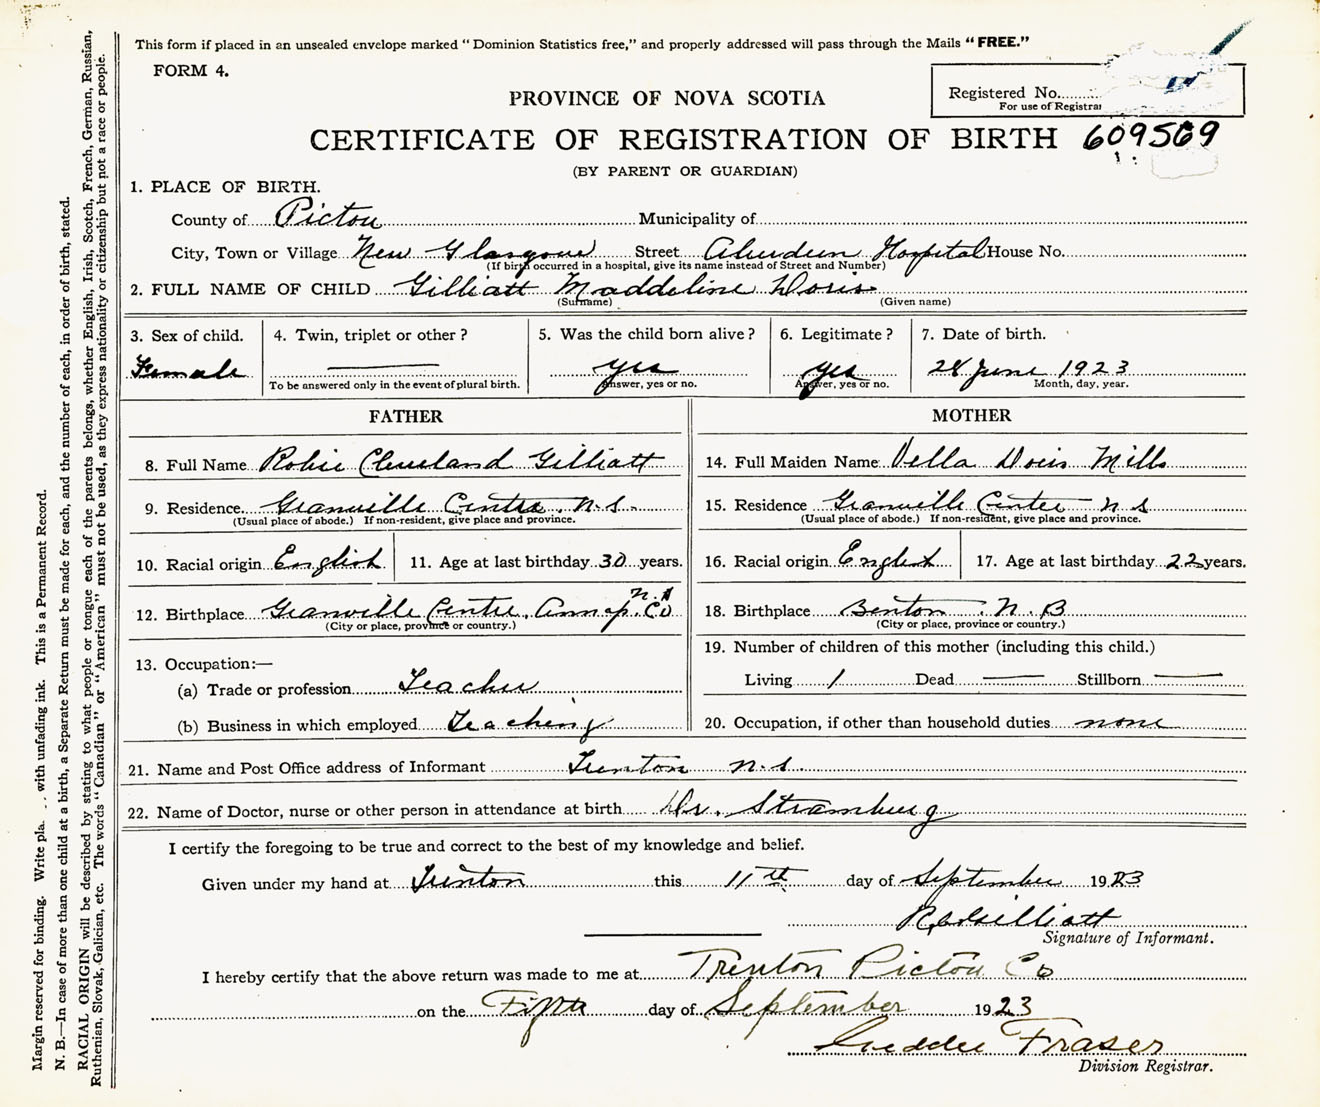 This form if placed in an unsealed envelope marked "Dominion Statistics free," and properly addressed will pass through the Mails "FREE."
FORM 4.
Registered No.
For use of Registrar
PROVINCE OF NOVA SCOTIA
CERTIFICATE OF REGISTRATION OF BIRTH 609569
(BY PARENT OR GUARDIAN)
1. PLACE OF BIRTH.
County of Pictou Municipality of
City, Town or Village New Glasgow Street Aberdeen Hospital House No.
(If birth occurred in a hospital, give its name instead of Street and Number)
2. FULL NAME OF CHILD Gilliatt Maddeline Doris
(Surname) (Given name)
3. Sex of child. 4. Twin, triplet or other? 5. Was the child born alive? 6. Legitimate? 7. Date of birth.
Female yes yes 28 June 1923
To be answered only in the event of plural birth. Answer, yes or no. Answer, yes or no. Month, day, year.
FATHER
8. Full Name Robie Cleveland Gilliatt
9. Residence Granville Centre. N.S.
(Usual place of abode.) If non-resident, give place and province.
10. Racial origin English 11. Age at last birthday 30 years.
12. Birthplace Granville Centre, Annap. Co N.S
(City or place, province or country.)
13. Occupation:—
(a) Trade or profession Teacher
(b) Business in which employed Teaching
MOTHER
14. Full Maiden Name Vella Doris Mills
15. Residence Granville Center N S
(Usual place of abode.) If non-resident, give place and province.
16. Racial origin English 17. Age at last birthday 22 years.
18. Birthplace Benton N. B
(City or place, province or country.)
19. Number of children of this mother (including this child.)
Living 1 Dead — Stillborn —
20. Occupation, if other than household duties none
21. Name and Post Office address of Informant Trenton N.S.
22. Name of Doctor, nurse or other person in attendance at birth Dr. Stramburg
I certify the foregoing to be true and correct to the best of my knowledge and belief.
Given under my hand at Trenton this 11th day of September 1923
R.C. Gilliatt
Signature of Informant.
I hereby certify that the above return was made to me at Trenton Pictou Co
on the Fifth day of September 1923
Fraser
Division Registrar.
Margin reserved for binding. Write pla. .. with unfading ink. This is a Permanent Record.
N. B.—In case of more than one child at a birth, a Separate Return must be made for each, and the number of each, in order of birth, stated.
RACIAL ORIGIN will be described by stating to what people or tongue each of the parents belongs, whether English, Irish, Scotch, French, German, Russian,
Ruthenian, Slovak, Galician, etc. The words "Canadian" or "American" must not be used, as they express nationality or citizenship but not a race or people.